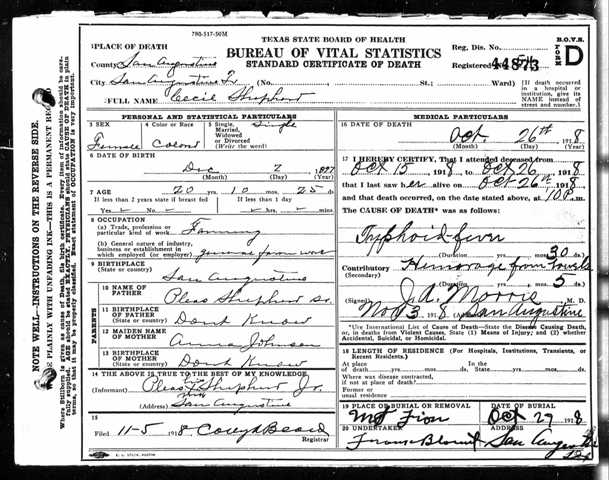 780-517-50M
TEXAS STATE BOARD OF HEALTH
BUREAU OF VITAL STATISTICS
STANDARD CERTIFICATE OF DEATH
B.O.V.S.
FORM D
Reg. Dis. No.
Registered 44873
1 PLACE OF DEATH
County San Augustine
City San Augustine (No. St.; Ward)
[If death occurred in a hospital or institution, give its NAME instead of street and number.]
2 FULL NAME Cecil Shepherd
PERSONAL AND STATISTICAL PARTICULARS
3 SEX Female
4 Color or Race Colord
5 Single, Married, Widowed or Divorced (Write the word) Single
6 DATE OF BIRTH
Dec 2 1897
7 AGE 20 yrs. 10 mos. 25 ds.
If less than 2 years state if breast fed If less than 1 day
Yes No hrs. min.
8 OCCUPATION
(a) Trade, profession or particular kind of work Farming
(b) General nature of industry, business or establishment in which employed (or employer) General farm work
9 BIRTHPLACE (State or country) San Augustine
PARENTS
10 NAME OF FATHER Pleas Shepherd Sr.
11 BIRTHPLACE OF FATHER (State or country) Dont Know
12 MAIDEN NAME OF MOTHER Anna Johnson
13 BIRTHPLACE OF MOTHER (State or country) Dont Know
14 THE ABOVE IS TRUE TO THE BEST OF MY KNOWLEDGE
(Informant) Pleas Shepherd Jr.
(Address) San Augustine
15
Filed 11-5 1918 Beard
Registrar
MEDICAL PARTICULARS
16 DATE OF DEATH
Oct. 26th 1918
17 I HEREBY CERTIFY, That I attended deceased from
Oct 15 1918, to Oct 26 1918
that I last saw her alive on Oct 26th 1918
and that death occurred, on the date stated above, at 10 P.m.
The CAUSE OF DEATH* was as follows:
Tryphoid fever
(Duration) yrs. mos. 30 ds.
Contributory Hemorage from bowels
(Secondary)
(Duration) yrs. mos. 5 ds.
(Signed) J.A. Morris M. D.
Nov 3 1918 (Address) San Augustine
*Use International List of Cause of Death—State the Disease Causing Death, or, in deaths from Violent Causes, State (1) Means of Injury; and (2) whether Accidental, Suicidal, or Homicidal.
18 LENGTH OF RESIDENCE (For Hospitals, Institutions, Transients, or Recent Residents.)
At place of death yrs. mos. ds. In the State yrs. mos. ds.
Where was disease contracted, if not at place of death?
Former or usual residence
19 PLACE OF BURIAL OR REMOVAL DATE OF BURIAL
Mt Zion Oct 27 1918
20 UNDERTAKER ADDRESS
Frans Blount San Augustine Tex
NOTE WELL—INSTRUCTIONS ON THE REVERSE SIDE.